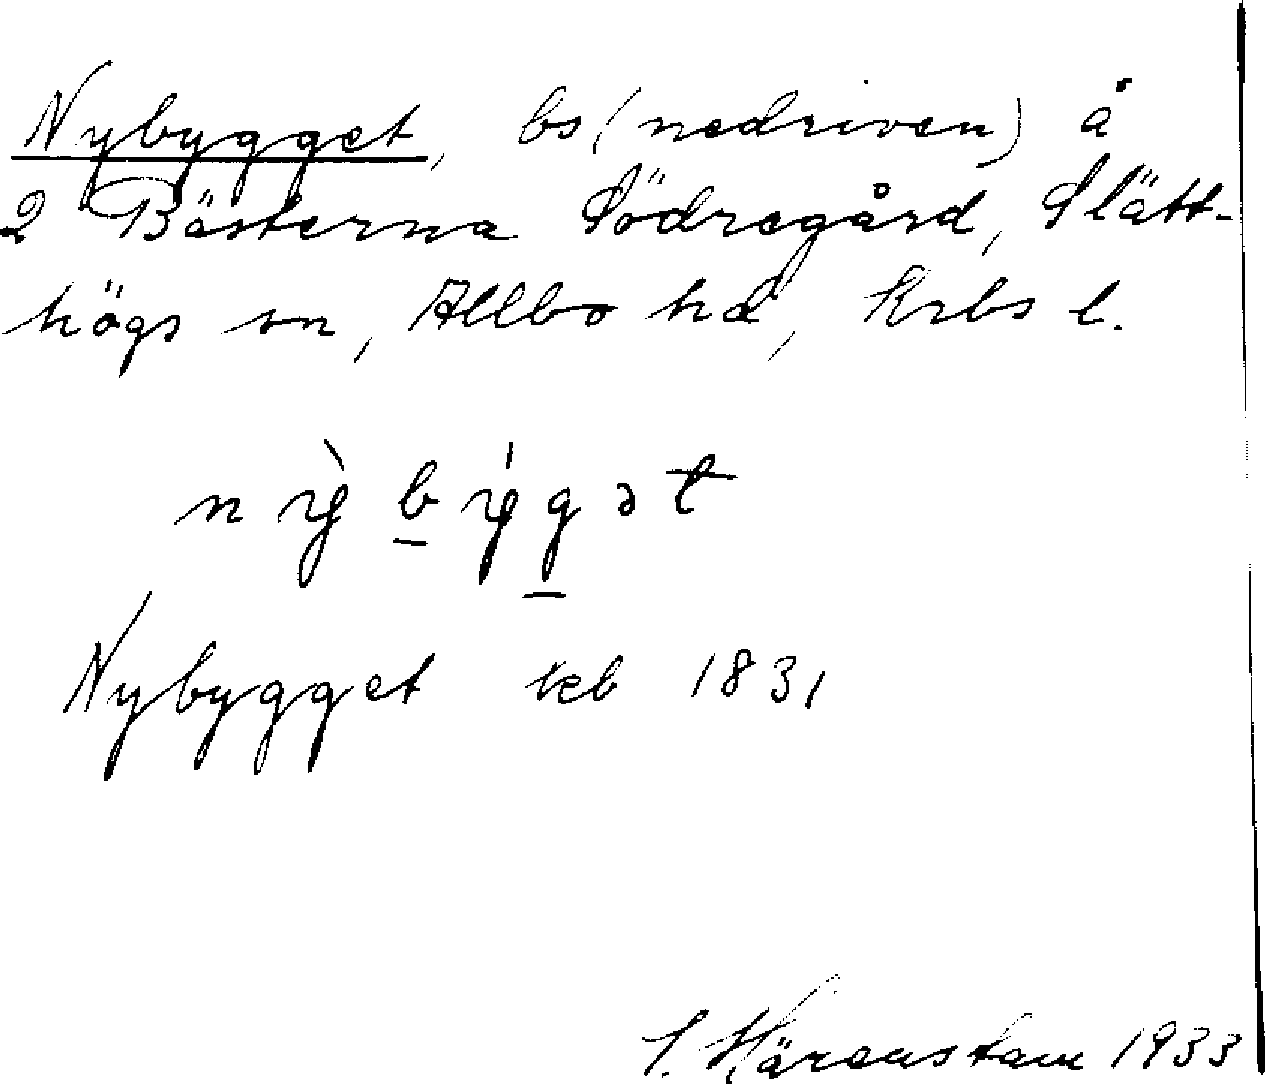 Nybygget, bs (nedriven) å
2 Bästerna Södregård, Slätt-
högs sn, Allbo hd, Krbs l.
nỳbýgət
Nybygget keb 1831
S. Härenstam 1933